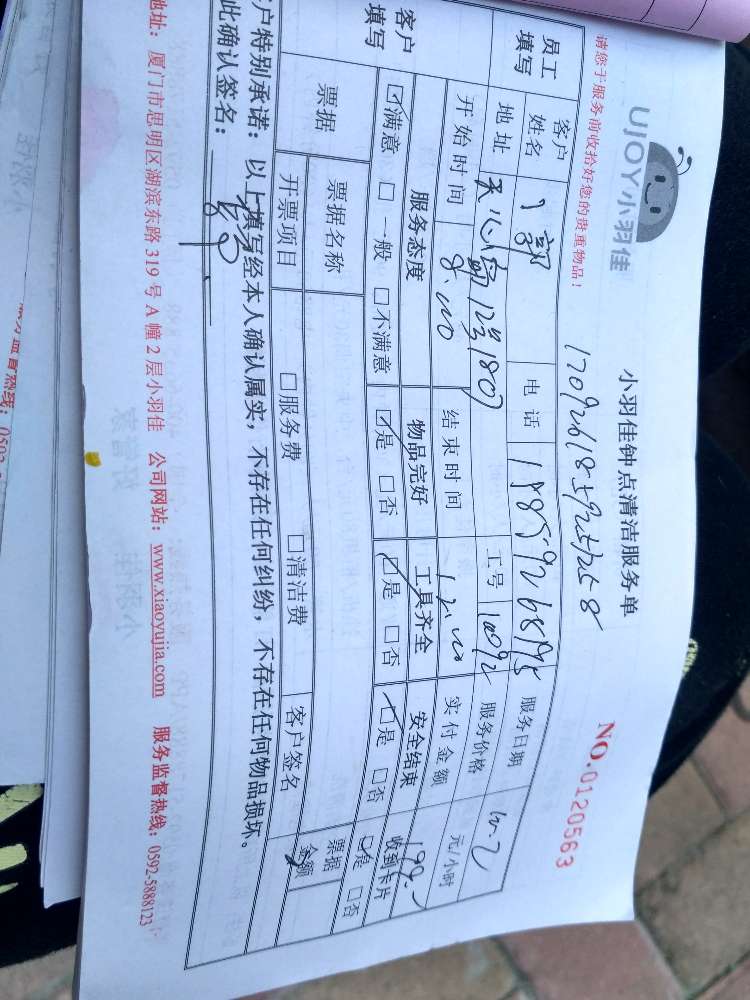 UJOY小羽佳
小羽佳钟点清洁服务单
请您于服务前收拾好您的贵重物品!
NO.0120563
员工填写
客户姓名
电话
服务日期
地址 天心岛12号1807
工号
服务价格 元/小时
开始时间 8:00
结束时间 12:00
实付金额 199.
客户填写
服务态度 物品完好 工具齐全 安全结束 收到卡片
☑满意 □一般 □不满意 ☑是 □否 ☑是 □否 ☑是 □否 ☑是 □否
票据 票据名称 票据金额
开票项目 □服务费 □清洁费 客户签名
户特别承诺：以上填写经本人确认属实，不存在任何纠纷，不存在任何物品损坏。
此确认签名：
地址：厦门市思明区湖滨东路 319 号 A 幢 2 层小羽佳 公司网站：www.xiaoyujia.com 服务监督热线：0592-5888123